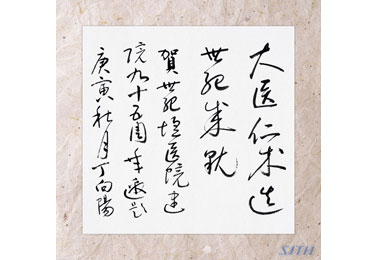 大医仁术造
世纪成就
賀世纪坛医院建
院九十五周年题
庚寅秋月丁向陽
SJTH